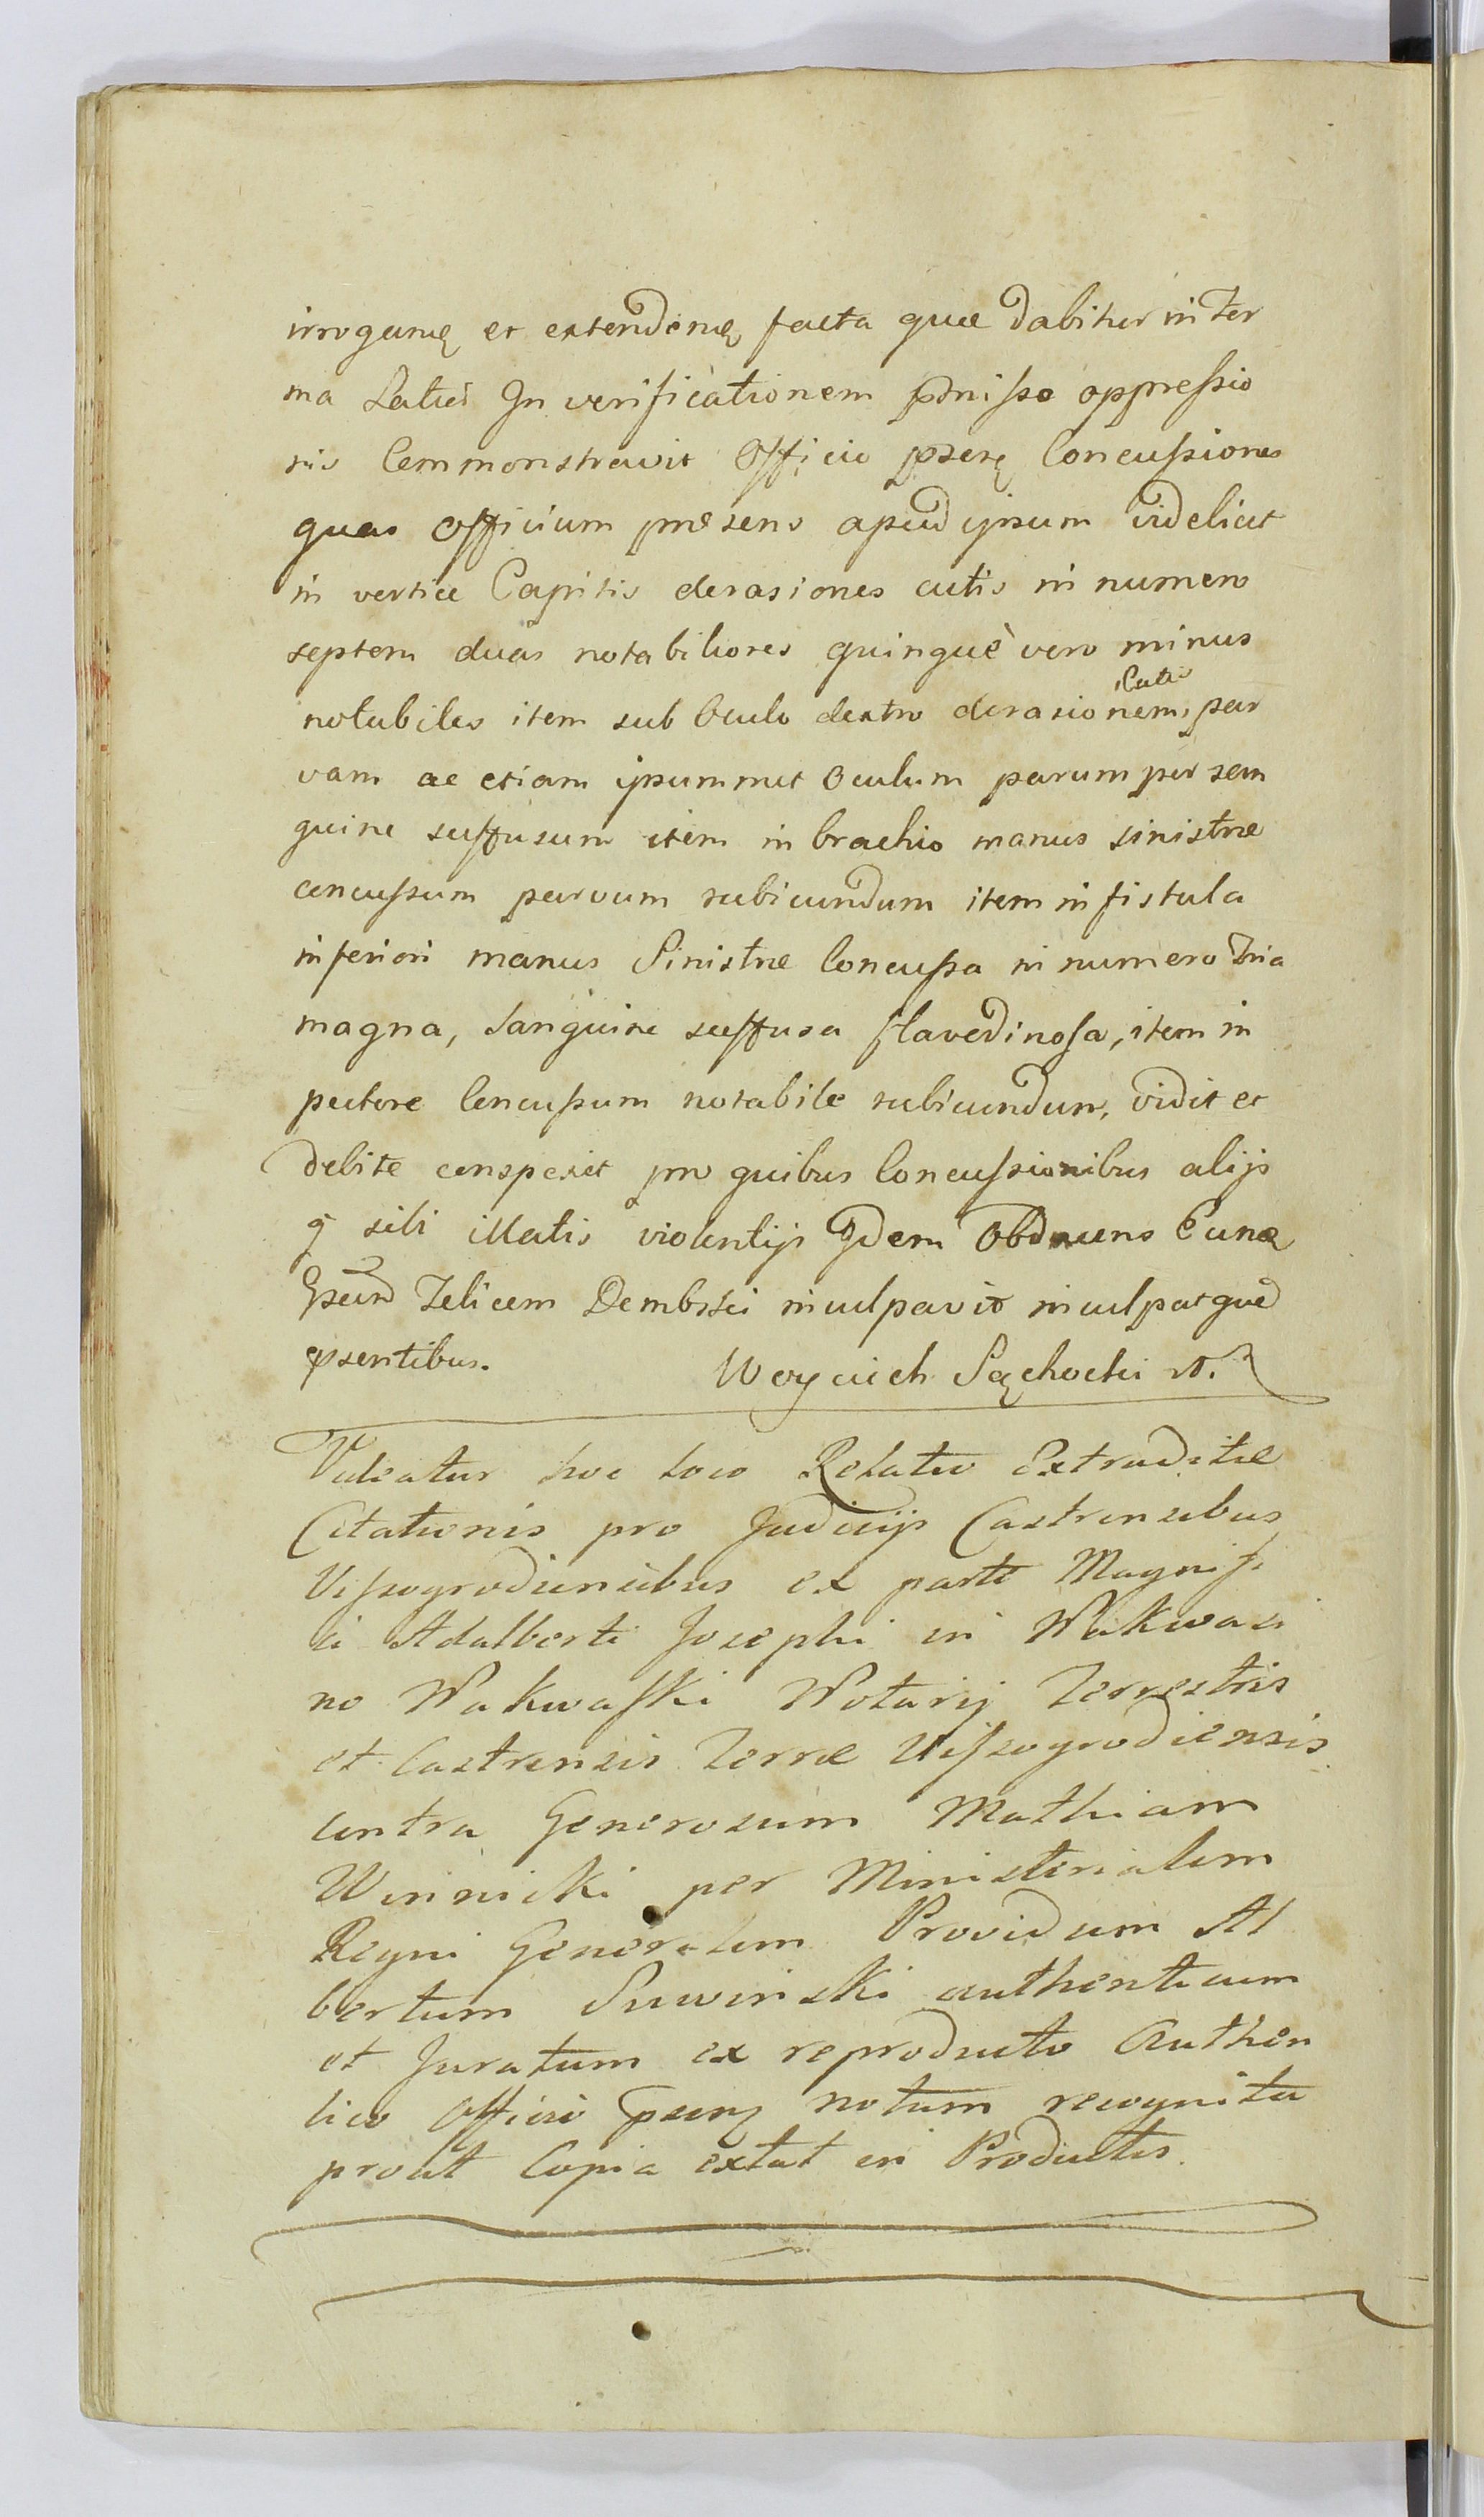 irrogarię et extendenę facta quæ dabitur in Ter
ma Latiùs In verificationem pdmisso oppressio
nis Commonstravit Officio pserę Concussiones
quas Officium præsens apud ipsum videlicet
in vertice Capitis derasiones cutis in numero
septem duas notabiliores quinquè vero minus
notabiles item sub Oculo dextro derasionem Cutis par
vam ac etiam ipsummet Oculum parumper san
guine suffusum item in brachio manus sinistræ
concussum parvum rubicundum item in fistula
inferiori manus Sinistræ Concussa in numero Tria
magna, Sanguine suffusa flavedinosa, item in
pectore Concussum notabile rubicundum, vidit et
debite conspexit pro quibus Concussionibus alijs
q̃ sibi illatis violentijs Idem Obducens Eunđ
Gsum Felicem Dembski inculpavit inculpatque
psentibus. Woyciech Sęchocki
Videatur hoc loco Relatio Extraditæ
Citationis pro Judicijs Castrensibus
Vissogrodiensibus ex parte Magnifi
ci Adalberti Josephi in Nakwasi
no Nakwaski Notarij Terrestris
et Castrensis Terræ Vissogrodiensis
contra Generosum Mathiam
Winnicki per Ministerialem
Regni Generalem Providum Al
bertum Suwinski authenticum
et Juratum ex reproducto Authen
tico Officio psenę notum recognita
prout Copia extat in Productis.